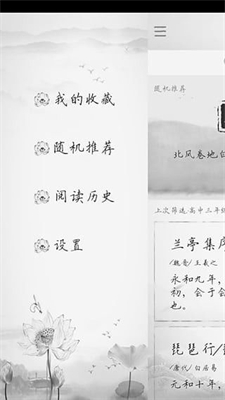 我的收藏
随机推荐
阅读历史
设置
随机推荐
北风卷地白
上次筛选:高中三年级
兰亭集序
/魏晋/王羲之
永和九年，
初，会于会
也。
琵琶行/
/唐代/白居易
元和十年，